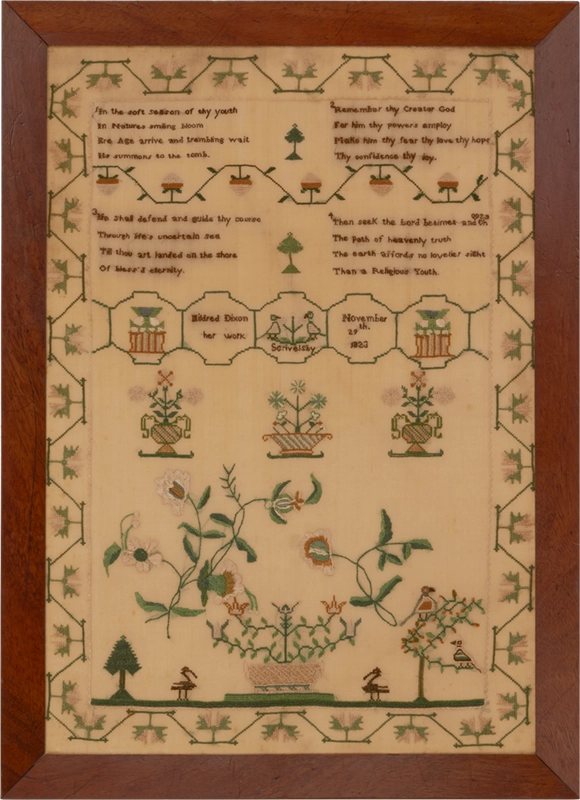 1 In the soft season of thy youth
In Natures smiling bloom
Ere Age arrive and trembling wait
Its summons to the tomb.
2 Remember thy Creator God
For him thy powers employ
Make him thy fear thy love thy hope
Thy confidence thy joy.
3 He shall defend and guide thy course
Through life's uncertain sea
Till thou art landed on the shore
Of bless'd eternity.
4 Then seek the Lord betimes and
The Path of heavenly truth
The earth affords no lovelier sight
Than a Religious Youth.
Mildred Dixon
her work
Scrivelsby
November
29th.
1823